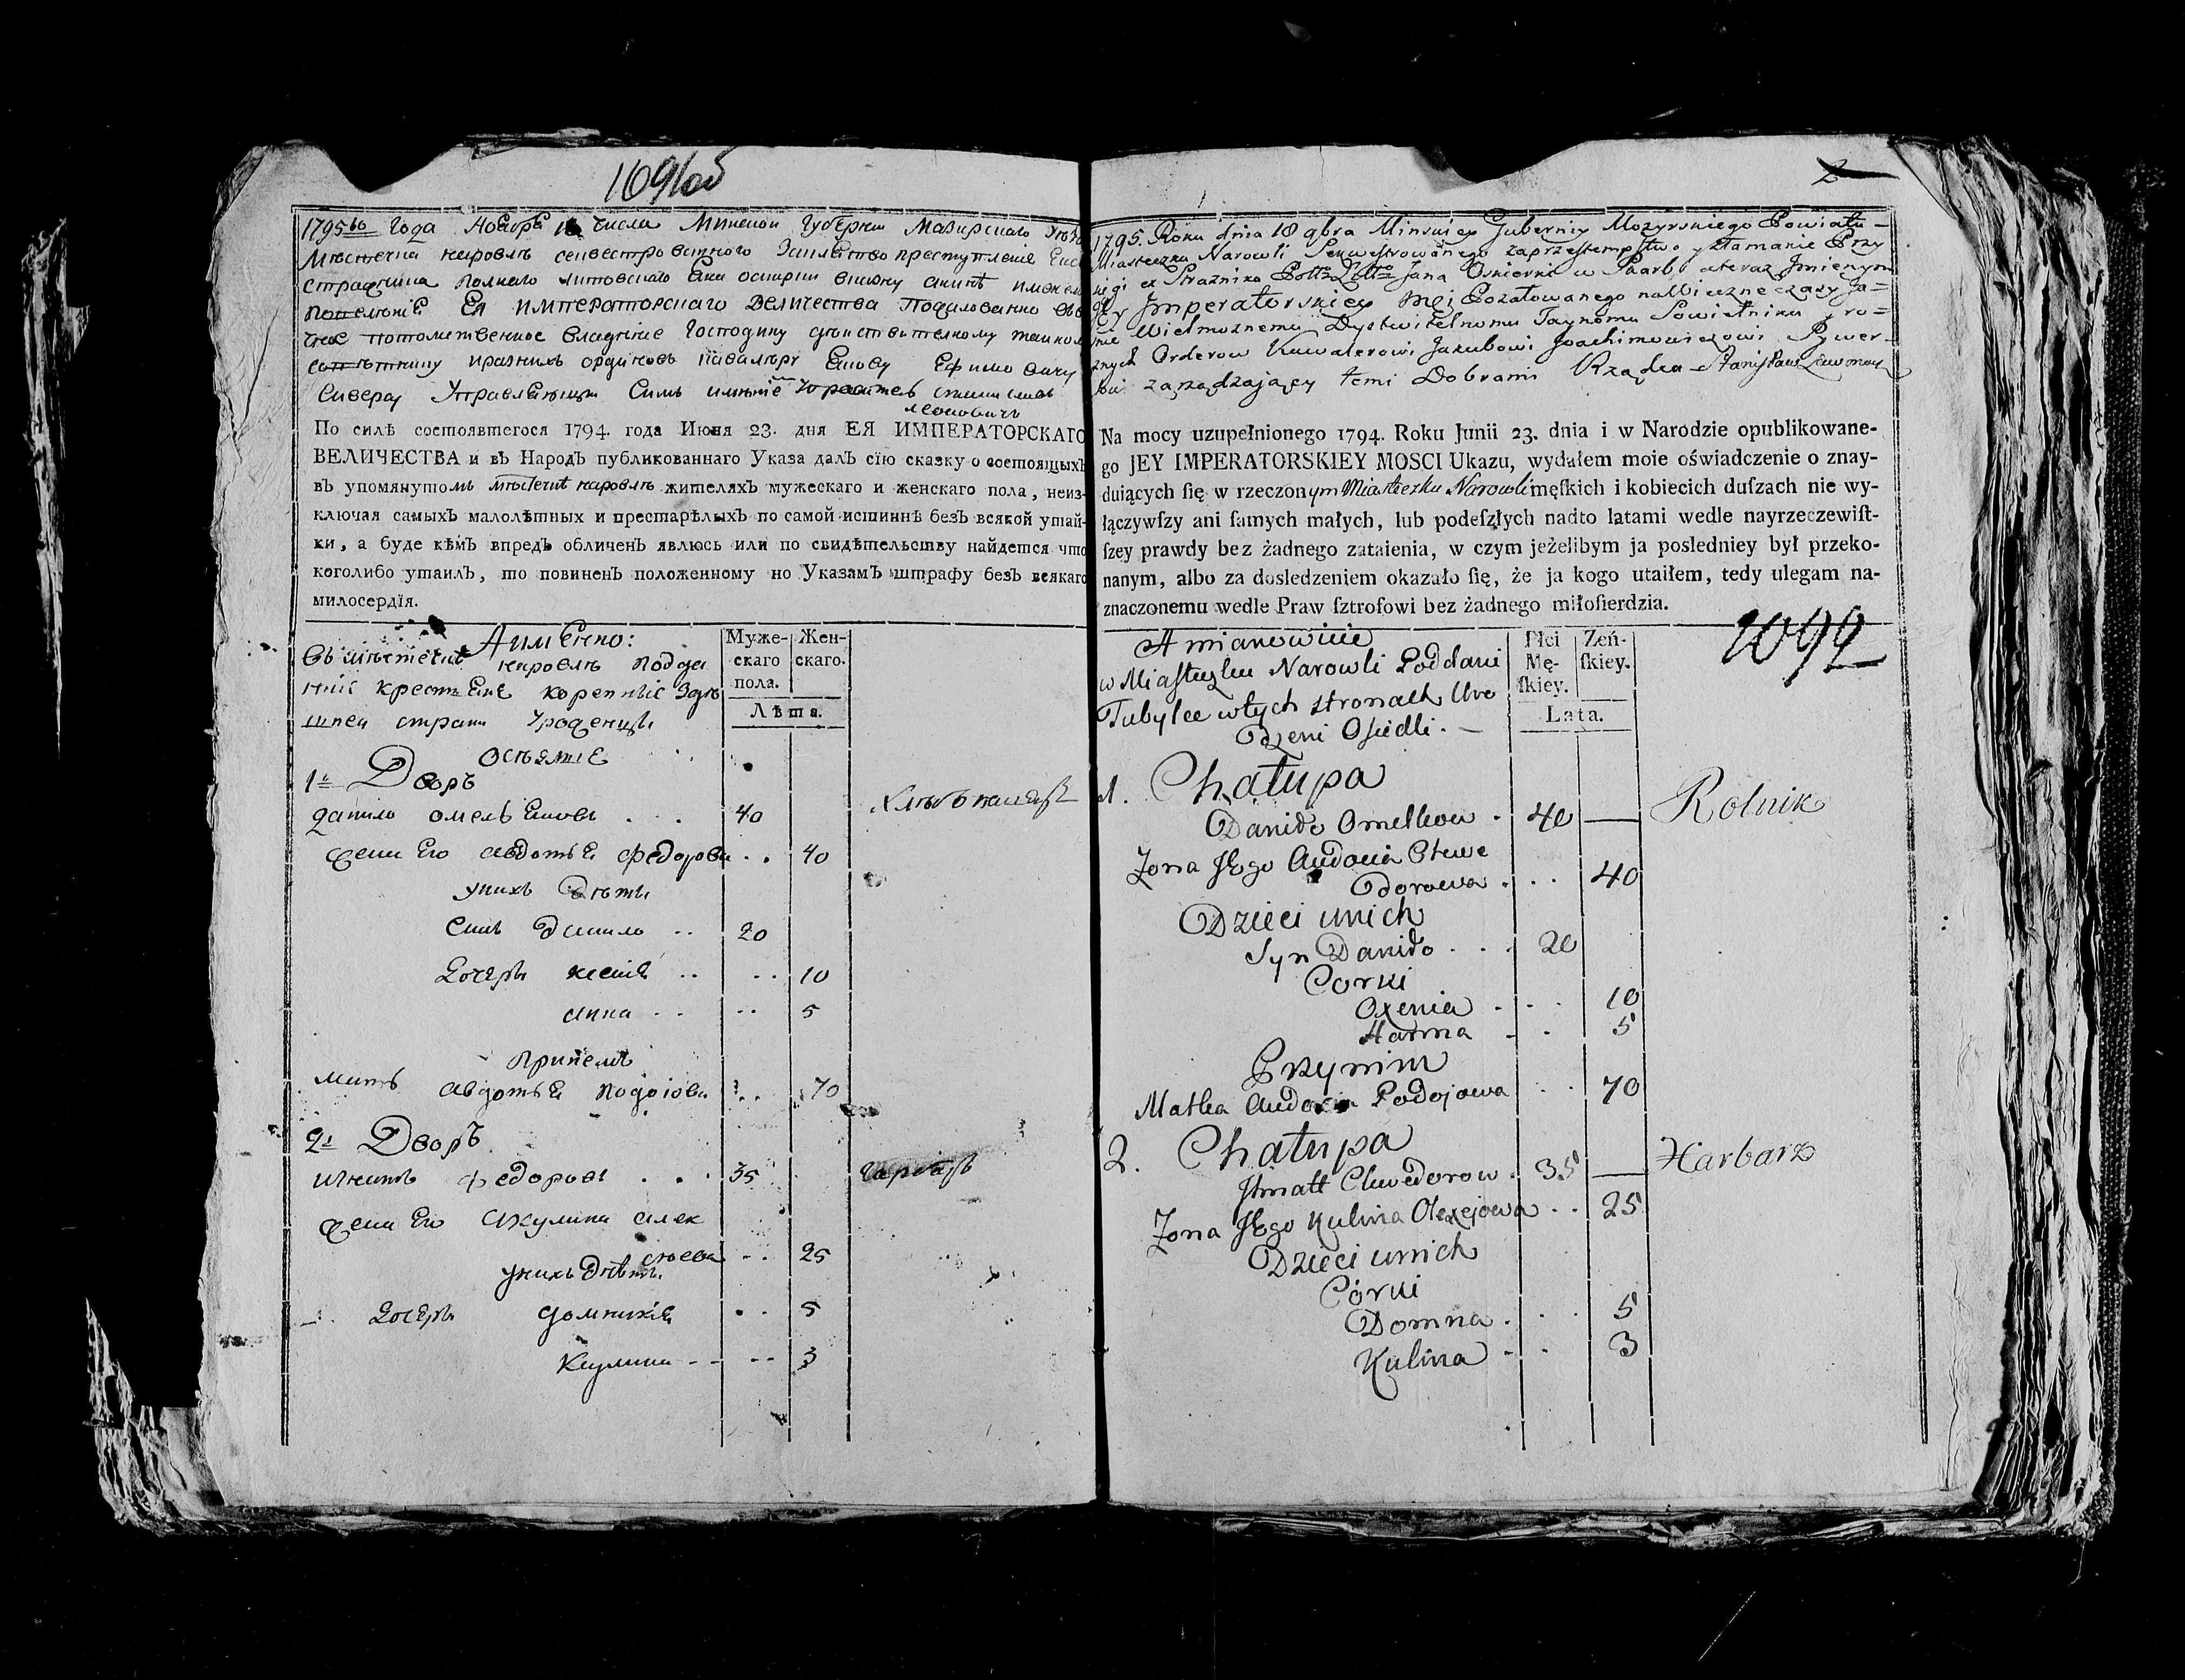 1091об
1795го Года Ноября 18 числа Минской Губернии Мазирскаго
Местечка Наровль секвестрованного За клятвопреступление
стражника Полнаго Литовскаго Яна Оскирки в Казну а ныне
Ея Императорскаго Величества Пожалованно
потомственное владение Господину действителному таином
советнику и разных ординовъ кавалеру Якову Ефимовичу
Сиверсу Управляющи Симъ имение
Леонович
По силѣ состоявшегося 1794. года Июня 23. дня ЕЯ ИМПЕРАТОРСКАГО
ВЕЛИЧЕСТВА и въ Народъ публикованнаго Указа далъ сїю сказку о состоящыхъ
въ упомянутомъ местечке наровле жителяхъ мужескаго и женскаго пола, неиз-
ключая самыхъ малолѣтныхъ и престарѣлыхъ по самой истиннѣ безъ всякой утай-
ки, а буде кѣмъ впредь обличенъ явлюсь или по свидѣтельству найдется что
коголибо утаилъ, то повиненъ положенному по Указамъ штрафу безъ всякаго
милосердїя.
А имЕнно:
въ местечке наровле подда
нніе крестьяне коренніе Зде
шней страни Уроженци
оселые
Муже-
скаго
пола.
Жен-
скаго.
Лѣта.
1й Дворъ
данило омельяновъ . . . 40 хлебопашецъ
жена Его авдотья федорова . . 40
у нихъ дети
Синъ данило .. 20
дочери ксеня .. .. 10
анна .. .. 5
Приемъ
мать авдотья подоіова .. 70
2й Дворъ
игнатъ федоровъ . . . 35 гарбаръ
жена Его Акулина алек
сеева .. 25
у нихъ дети
дочери домникія .. 5
Кулина .. .. 3
2
1795. Roku dnia 18 9bra Minskiey Gubernij Mozyrskiego Powiatu
Miasteczka Narowli Sekwestrowanego za przestempstwo y złamanie Przy
sięgi ex Strażnika Poltº Littº Jana Oskierki w Skarb a teraz Jmiennym
Jmperatorskiey Mci Pozałowanego na Wieczne czasy Ja=
Wielmoznemu Dystwitelnomu Taynomu Sowietniku y ro=
znych Orderow Kawalerowi Jakubowi Joachimowiczowi Sywer=
sowi zarządzaiący temi Dobrami Rządca Stanisław Lewonowicz
Na mocy uzupełnionego 1794. Roku Junii 23. dnia i w Narodzie opublikowane-
go JEY IMPERATORSKIEY MOSCI Ukazu, wydałem moie oświadczenie o znay-
duiących ſię w rzeczonym Miasteczku Narowli męſkich i kobiecich duſzach nie wy-
łączywſzy ani ſamych małych, lub podeſzłych nadto latami wedle nayrzeczewiſt-
ſzey prawdy bez żadnego zataienia, w czym jeżelibym ja posledniey był przeko-
nanym, albo za dosledzeniem okazało ſię, że ja kogo utaiłem, tedy ulegam na-
znaczonemu wedle Praw ſztrofowi bez żadnego miłoſierdzia.
1092
A mianowicie
w Miasteczku Narowli Poddani
Tubylce w tych stronach Uro
dzeni Osiedli. —
Płci
Mę-
ſkiey.
Zeń-
ſkiey.
Lata.
1. Chałupa
Daniło Omelkow . 40 — Rolnik
Zona Jego Audocia Chwe
dorowa . . . 40
Dzieci u nich
Syn Daniło . . . 20
Corki
Oxenia . . . 10
Hanna . . 5
Przyním
Matka Audocia Podojowa . . 70
2. Chałupa
Jhnatt Chwedorow . 35 — Harbarz
Zona Jego Kulina Olexejowa . . 25
Dzieci u nich
Córki
Domna . . 5
Kulina . . 3